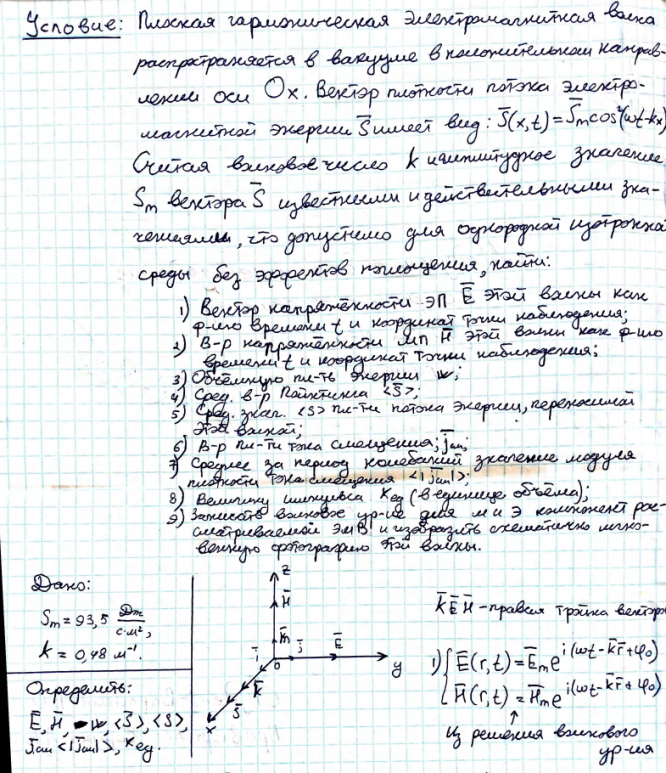 Условие: Плоская гармоническая электромагнитная волна
распространяется в вакууме в положительном направ-
лении оси Ox. Вектор плотности потока электро-
магнитной энергии S̄ имеет вид: S̄(x,t) = S̄m cos²(ωt-kx)
Считая волновое число k и амплитудное значение
Sm вектора S̄ известными и действительными зна-
чениями, что допустимо для однородной изотропной
среды без эффектов поглощения, найти:
1) Вектор напряжённости ЭП Ē этой волны как
ф-ию времени t и координат точки наблюдения;
2) В-р напряжённости МП H̄ этой волны как ф-ию
времени t и координат точки наблюдения;
3) Объёмную пл-ть энергии w;
4) Сред. в-р Пойнтинга <S̄>;
5) Сред. знач. <S> пл-ти потока энергии, переносимой
этой волной;
6) В-р пл-ти тока смещения j̄см;
7) Среднее за период колебаний значение модуля
плотности тока смещения <|j̄см|>;
8) Величину импульса Kед (в единице объёма);
9) Записать волновое ур-ие для м и Э компонент рас-
сматриваемой ЭМВ и изобразить схематично мгно-
венную фотографию этой волны.
Дано:
Sm = 93,5 Дж/с·м²,
k = 0,48 м⁻¹.
Определить:
Ē, H̄, w, <S̄>, <S>,
j̄см <|j̄см|>, Kед.
z
H̄
m̄
ī
0
j̄
Ē
y
k̄
S̄
x
k̄ Ē H̄ - правая тройка векторов
1) { Ē(r,t) = Ēm e^i(ωt-k̄r̄+φ₀)
H̄(r,t) = H̄m e^i(ωt-k̄r̄+φ₀)
Из решения волнового
ур-ия